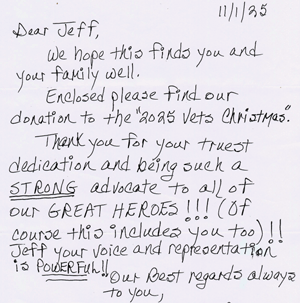 11/1/25
Dear Jeff,
We hope this finds you and
your family well.
Enclosed please find our
donation to the "2025 Vets Christmas".
Thank you for your truest
dedication and being such a
STRONG advocate to all of
our GREAT HEROES!!! (Of
course this includes you too)!!
Jeff your voice and representation
is POWERFUL!!
"Our Best regards always
to you,